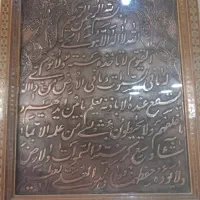 الله لا اله الا هو الحي
القيوم لا تأخذه سنة ولا نوم
له ما في السموات وما في الارض من ذا الذي
يشفع عنده الا باذنه يعلم ما بين ايديهم و
ما خلفهم ولا يحيطون بشيء من علمه الا بما
شاء وسع كرسيه السموات والارض
ولا يؤده حفظهما وهو العلي العظيم